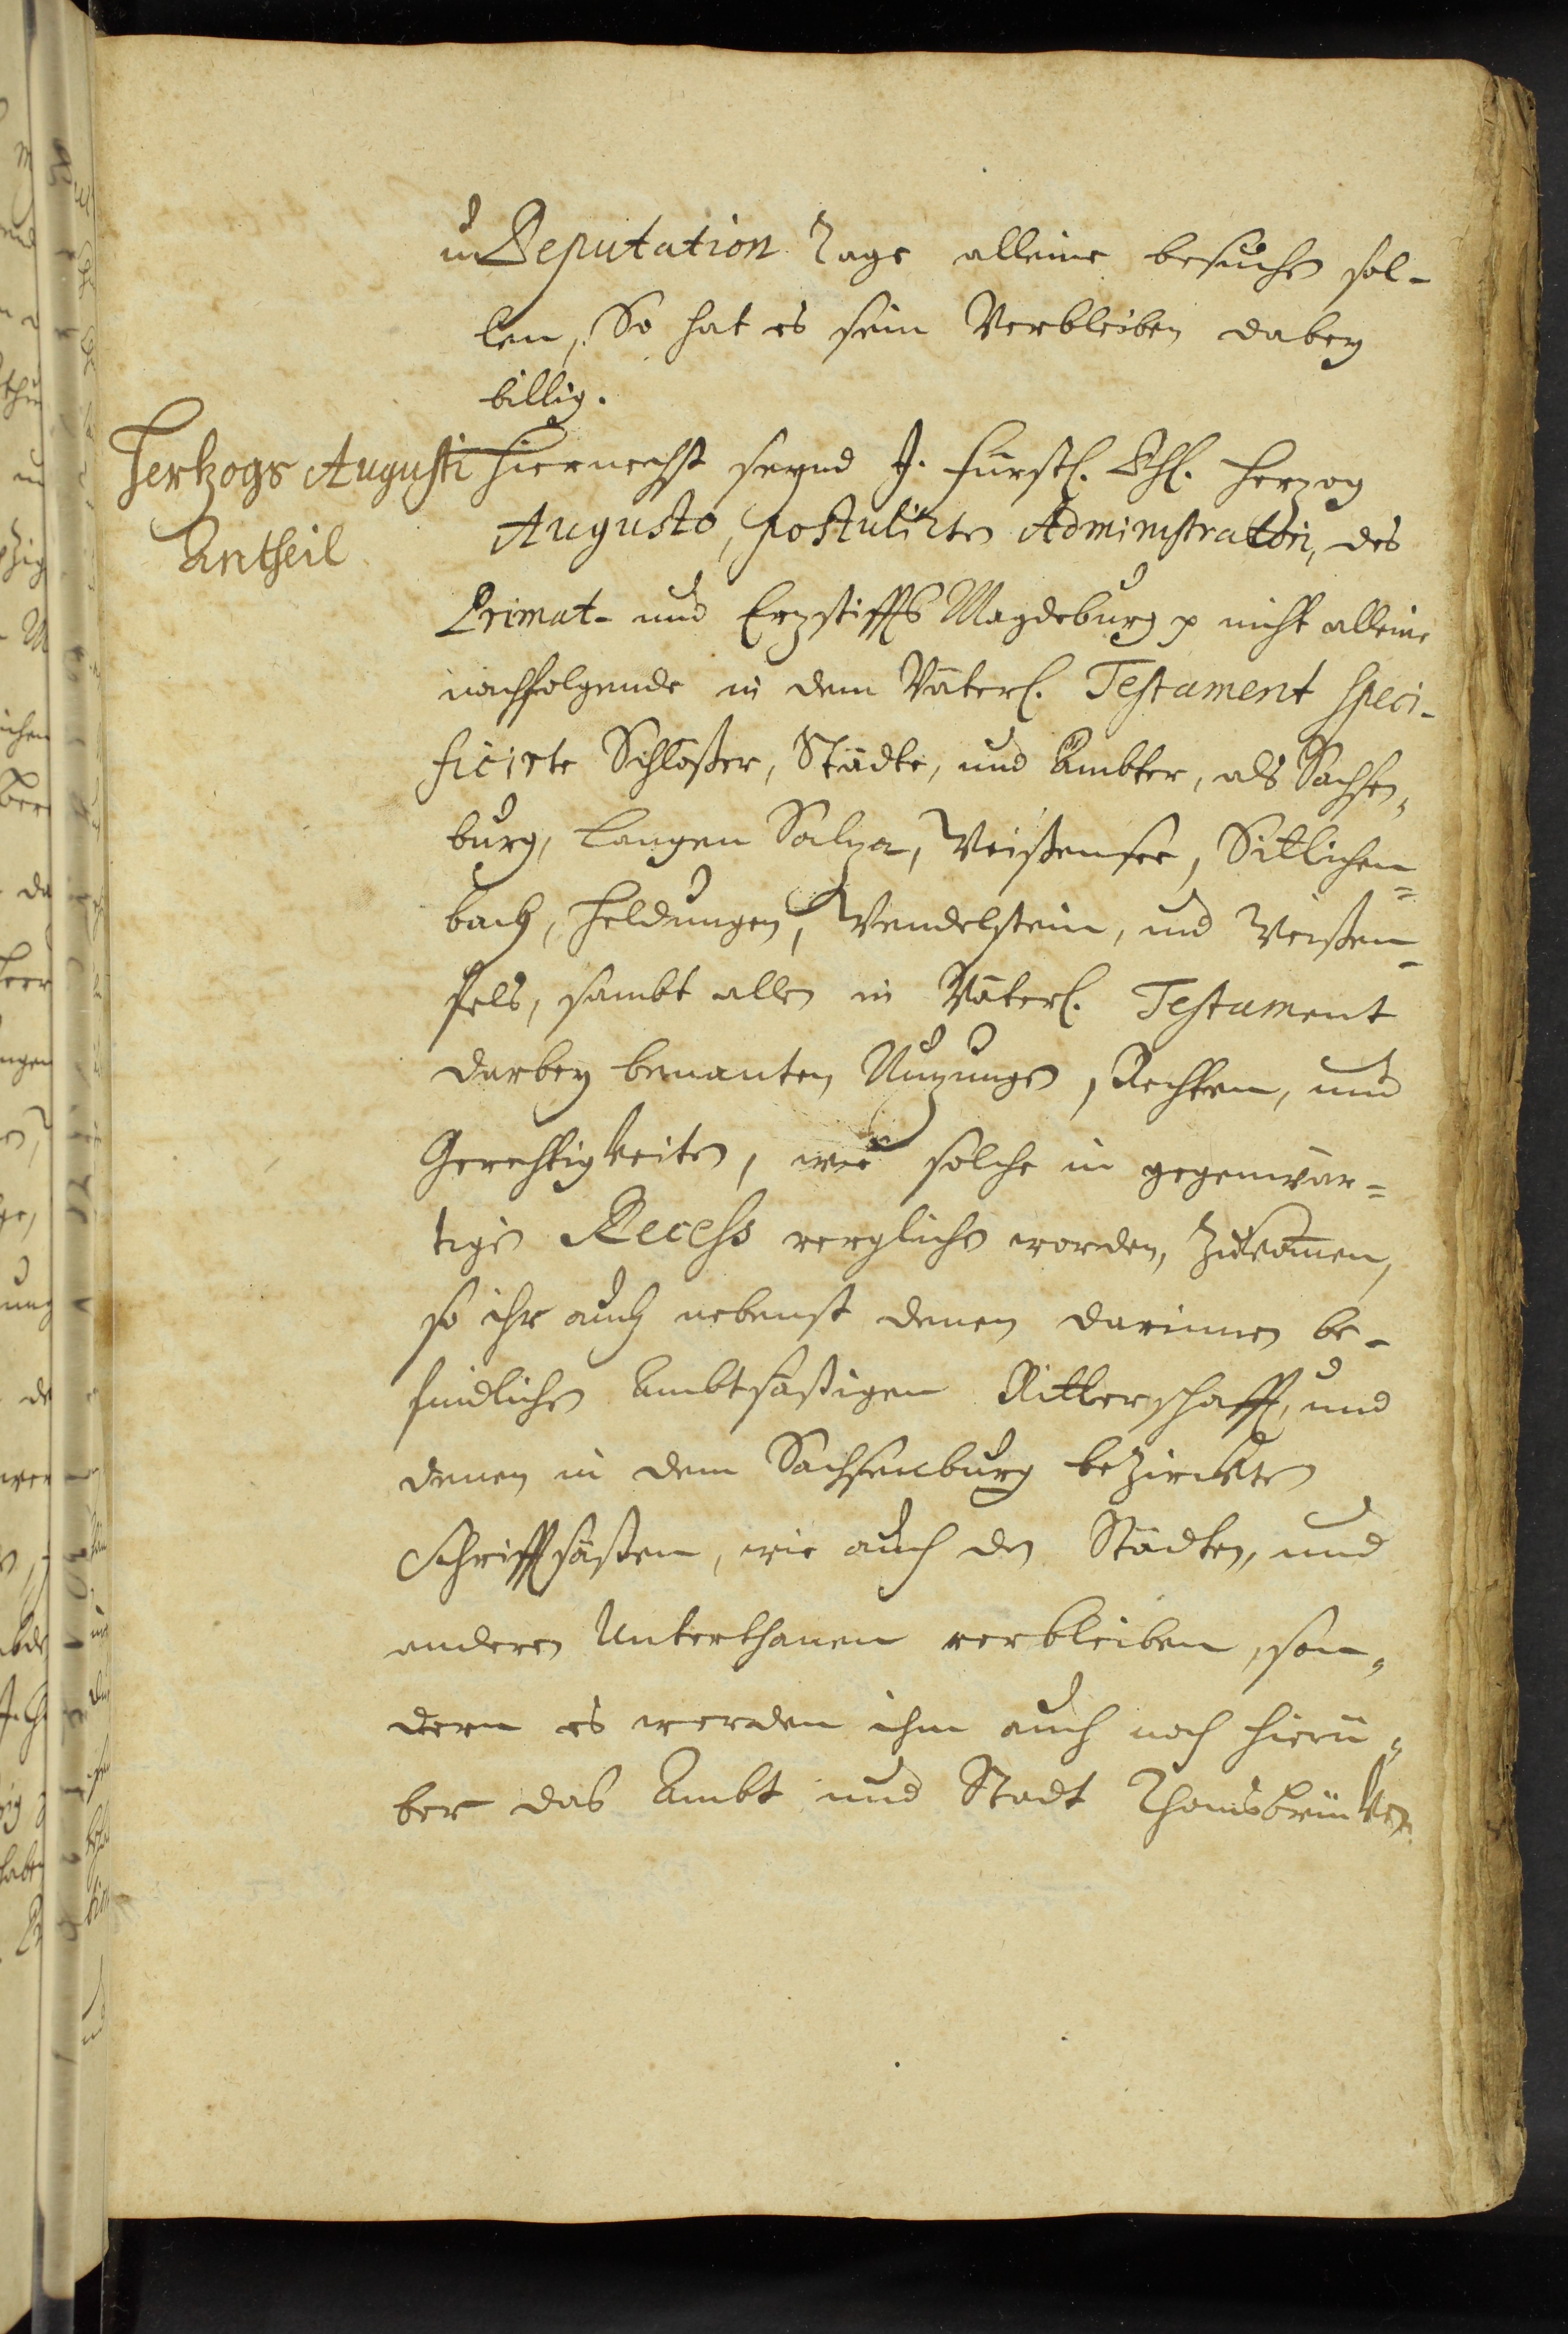 u Deputation Tage alleine besuchen sol-
len, So hat es sein Verbleiben dabey
billig.
Hertzogs Augusti
Antheil
Hiernechst seynd J. Fürstl. Dhl. Herzog
Augusto, postulirten Administratori, des
Primat- und Erzstiffts Magdeburg p nicht alleine
nachfolgende in dem Väterl. Testament speci-
ficirte Schlößer, Städte, und Ämbter, als Sachsen,
burg, Langen Salza, Weißensee, Sittichen=
bach, Heldrungen, Wendelstein, und Weißen-
fels, sambt allen in Väterl. Testament
darbey benanten Nuzungen, Rechten, und
Gerechtigkeiten, wie solche in gegenwär=
tigen Recess verglichen worden, zukom̄en,
so ihr auch nebenst denen darinnen be-
findlichen Ambtsäßigen Ritterschafft, und
denen in dem Sachsenburg bezirckten
Schrifftsäßen, wie auch den Städten, und
anderen Unterthanen verbleiben, son,
dern es werden ihm auch noch hierü,
ber das Ambt und Stadt Thomsbrücken